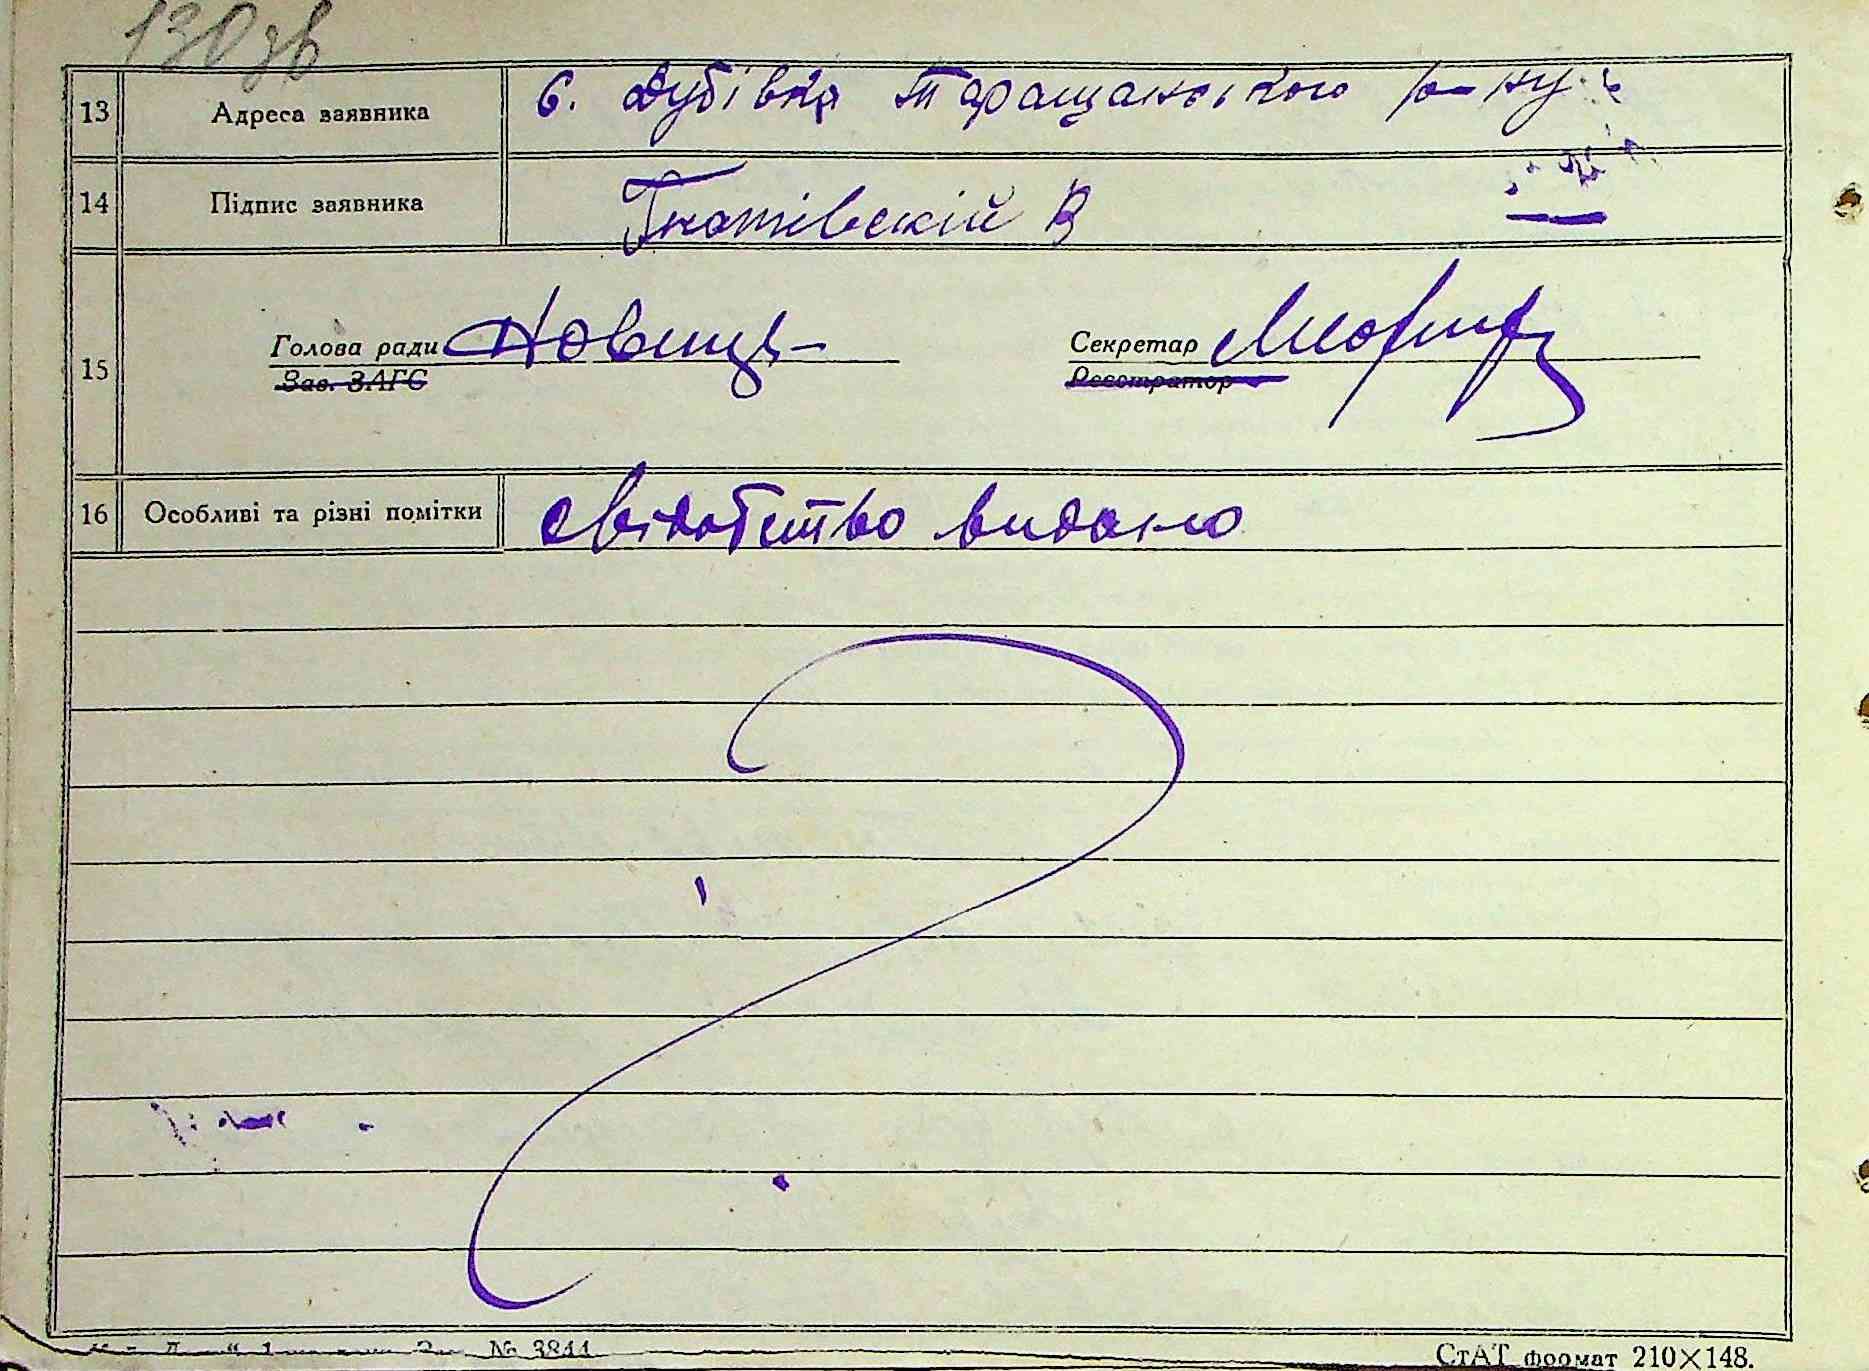 130зв
13 Адреса заявника с. Дубівка Таращанського р-ну
14 Підпис заявника Гнатівскій В
15 Голова ради Новиць- Секретар
Зав. ЗАГС Реєстратор
16 Особливі та різні помітки свідоцтво видано
№ 3844 СтАТ формат 210×148.